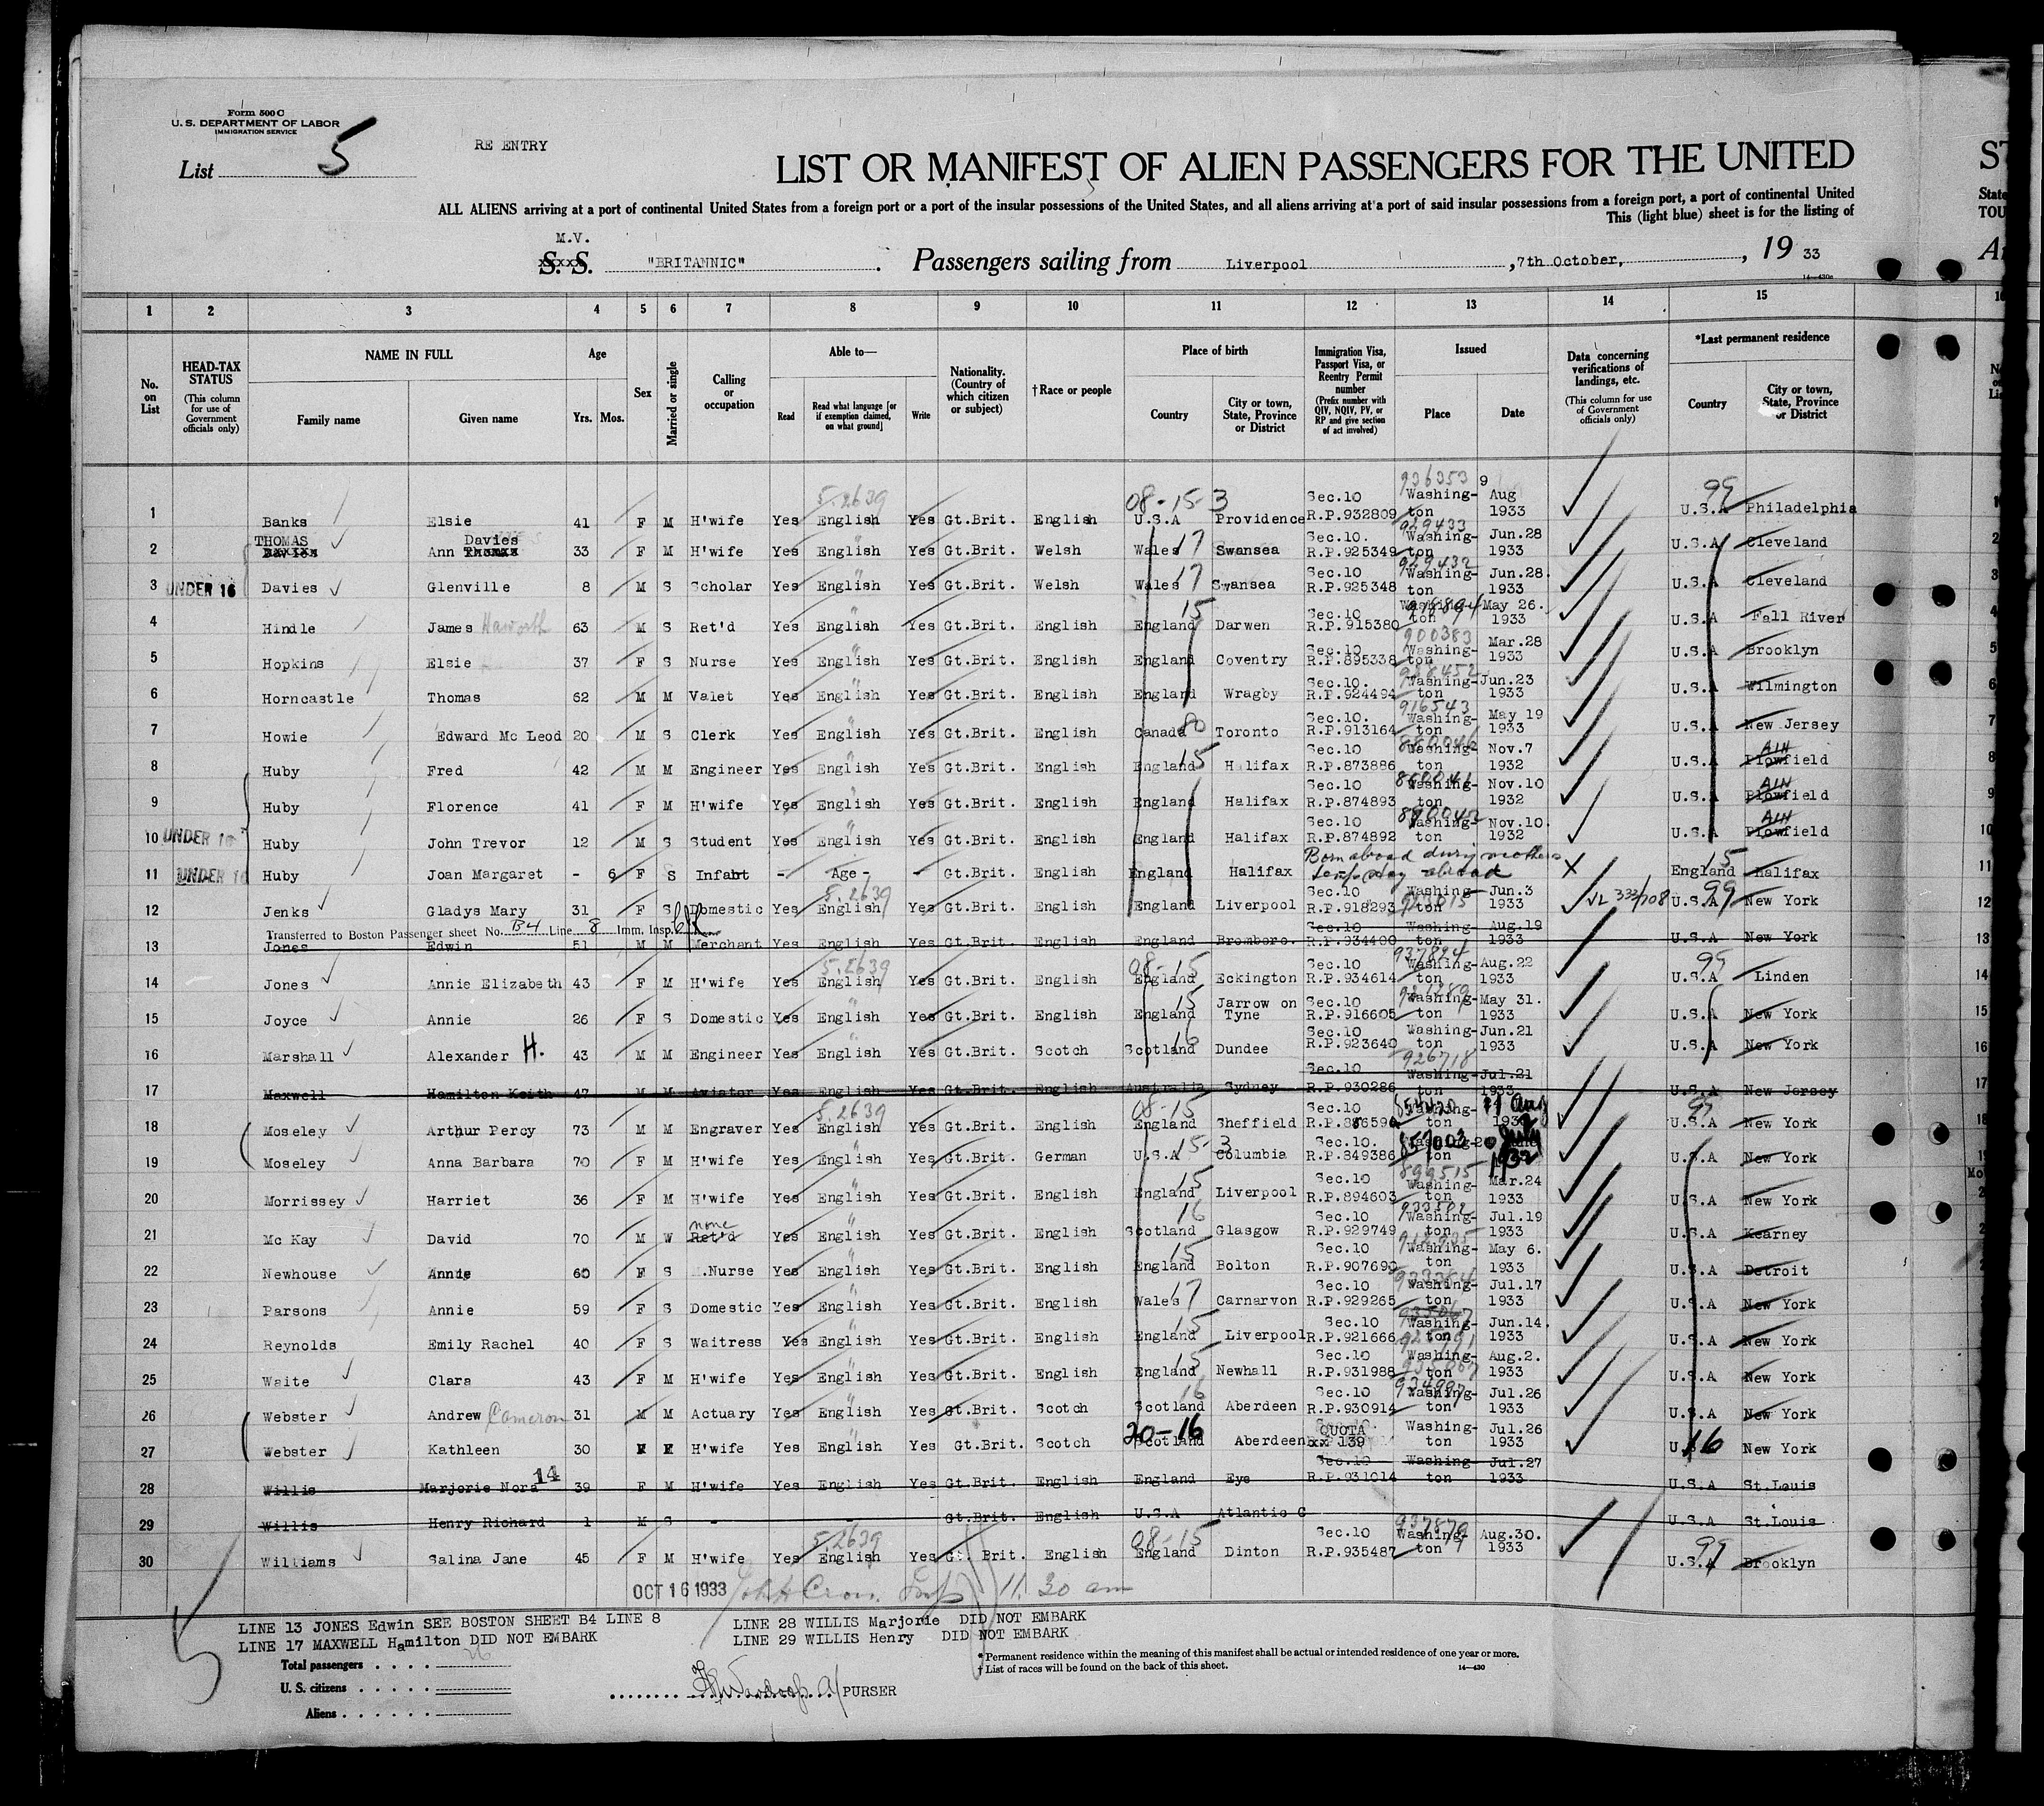 Form 500 C
U. S. DEPARTMENT OF LABOR
IMMIGRATION SERVICE
List 5
RE ENTRY
LIST OR MANIFEST OF ALIEN PASSENGERS FOR THE UNITED
ALL ALIENS arriving at a port of continental United States from a foreign port or a port of the insular possessions of the United States, and all aliens arriving at a port of said insular possessions from a foreign port, a port of continental United
This (light blue) sheet is for the listing of
M.V.
S. S. "BRITANNIC" . Passengers sailing from Liverpool , 7th October, , 19 33
1 2 3 4 5 6 7 8 9 10 11 12 13 14 15
No. on List
HEAD-TAX STATUS (This column for use of Government officials only)
NAME IN FULL
Family name Given name
Age Yrs. Mos.
Sex
Married or single
Calling or occupation
Able to—
Read Read what language [or if exemption claimed, on what ground] Write
Nationality. (Country of which citizen or subject)
† Race or people
Place of birth
Country City or town, State, Province or District
Immigration Visa, Passport Visa, or Reentry Permit number (Prefix number with QIV, NQIV, PV, or RP and give section of act involved)
Issued
Place Date
Data concerning verifications of landings, etc. (This column for use of Government officials only)
*Last permanent residence
Country City or town, State, Province or District
1 Banks Elsie 41 F M H'wife Yes English Yes Gt.Brit. English U.S.A Providence Sec.10 R.P.932809 Washington 9 Aug 1933 U.S.A Philadelphia
2 THOMAS Davies Ann Davies Thomas 33 F M H'wife Yes English Yes Gt.Brit. Welsh Wales Swansea Sec.10. R.P.925349 Washington Jun.28 1933 U.S.A Cleveland
3 UNDER 16 Davies Glenville 8 M S Scholar Yes English Yes Gt.Brit. Welsh Wales Swansea Sec.10 R.P.925348 Washington Jun.28. 1933 U.S.A Cleveland
4 Hindle James Haworth 63 M S Ret'd Yes English Yes Gt.Brit. English England Darwen Sec.10 R.P.915380 Washington May 26. 1933 U.S.A Fall River
5 Hopkins Elsie 37 F S Nurse Yes English Yes Gt.Brit. English England Coventry Sec.10 R.P.895338 Washington Mar.28 1933 U.S.A Brooklyn
6 Horncastle Thomas 62 M M Valet Yes English Yes Gt.Brit. English England Wragby Sec.10. R.P.924494 Washington Jun.23 1933 U.S.A Wilmington
7 Howie Edward Mc Leod 20 M S Clerk Yes English Yes Gt.Brit. English Canada Toronto Sec.10. R.P.913164 Washington May 19 1933 U.S.A New Jersey
8 Huby Fred 42 M M Engineer Yes English Yes Gt.Brit. English England Halifax Sec.10 R.P.873886 Washington Nov.7 1932 U.S.A Plowfield AIN
9 Huby Florence 41 F M H'wife Yes English Yes Gt.Brit. English England Halifax Sec.10 R.P.874893 Washington Nov.10 1932 U.S.A Plowfield AIN
10 UNDER 16 Huby John Trevor 12 M S Student Yes English Yes Gt.Brit. English England Halifax Sec.10 R.P.874892 Washington Nov.10. 1932 U.S.A Plowfield AIN
11 UNDER 16 Huby Joan Margaret - 6 F S Infant - Age - - Gt.Brit. English England Halifax Born abroad during mothers temp stay abroad X England 15 Halifax
12 Jenks Gladys Mary 31 F S Domestic Yes English Yes Gt.Brit. English England Liverpool Sec.10 R.P.918293 Washington Jun.3 1933 VL 333/708 U.S.A New York
Transferred to Boston Passenger sheet No. B4 Line 8 Imm. Insp.
13 Jones Edwin 51 M M Merchant Yes English Yes Gt.Brit. English England Bromboro. Sec.10 R.P.934400 Washington Aug.19 1933 U.S.A New York
14 Jones Annie Elizabeth 43 F M H'wife Yes English Yes Gt.Brit. English England Eckington Sec.10 R.P.934614 Washington Aug.22 1933 U.S.A Linden
15 Joyce Annie 26 F S Domestic Yes English Yes Gt.Brit. English England Jarrow on Tyne Sec.10 R.P.916605 Washington May 31. 1933 U.S.A New York
16 Marshall Alexander H. 43 M M Engineer Yes English Yes Gt.Brit. Scotch Scotland Dundee Sec.10 R.P.923640 Washington Jun.21 1933 U.S.A New York
17 Maxwell Hamilton Keith 47 M M Aviator Yes English Yes Gt.Brit. English Australia Sydney Sec.10 R.P.930286 Washington Jul.21 1933 U.S.A New Jersey
18 Moseley Arthur Percy 73 M M Engraver Yes English Yes Gt.Brit. English England Sheffield Sec.10 R.P. Washington U.S.A New York
19 Moseley Anna Barbara 70 F M H'wife Yes English Yes Gt.Brit. German U.S.A Columbia Sec.10. R.P.849386 Washington July 1932 U.S.A New York
20 Morrissey Harriet 36 F M H'wife Yes English Yes Gt.Brit. English England Liverpool Sec.10 R.P.894603 Washington Mar.24 1933 U.S.A New York
21 Mc Kay David 70 M W none Ret'd Yes English Yes Gt.Brit. English Scotland Glasgow Sec.10 R.P.929749 Washington Jul.19 1933 U.S.A Kearney
22 Newhouse Annie 60 F S Nurse Yes English Yes Gt.Brit. English England Bolton Sec.10 R.P.907690 Washington May 6. 1933 U.S.A Detroit
23 Parsons Annie 59 F S Domestic Yes English Yes Gt.Brit. English Wales Carnarvon Sec.10 R.P.929265 Washington Jul.17 1933 U.S.A New York
24 Reynolds Emily Rachel 40 F S Waitress Yes English Yes Gt.Brit. English England Liverpool Sec.10 R.P.921666 Washington Jun.14. 1933 U.S.A New York
25 Waite Clara 43 F M H'wife Yes English Yes Gt.Brit. English England Newhall Sec.10 R.P.931988 Washington Aug.2. 1933 U.S.A New York
26 Webster Andrew Cameron 31 M M Actuary Yes English Yes Gt.Brit. Scotch Scotland Aberdeen Sec.10 R.P.930914 Washington Jul.26 1933 U.S.A New York
27 Webster Kathleen 30 H'wife Yes English Yes Gt.Brit. Scotch 20-16 Scotland Aberdeen QUOTA 139 Washington Jul.26 1933 U.S.A 16 New York
28 Willis Marjorie Nora 14 39 F M H'wife Yes English Yes Gt.Brit. English England Eye Sec.10 R.P.931014 Washington Jul.27 1933 U.S.A St.Louis
29 Willis Henry Richard 1 M S - - Gt.Brit. English U.S.A Atlantic C U.S.A St.Louis
30 Williams Salina Jane 45 F M H'wife Yes English Yes Gt. Brit. English England Dinton Sec.10 R.P.935487 Washington Aug.30. 1933 U.S.A Brooklyn
OCT 16 1933 11.30 am
LINE 13 JONES Edwin SEE BOSTON SHEET B4 LINE 8
LINE 17 MAXWELL Hamilton DID NOT EMBARK
LINE 28 WILLIS Marjorie DID NOT EMBARK
LINE 29 WILLIS Henry DID NOT EMBARK
Total passengers
U. S. citizens
Aliens
PURSER
* Permanent residence within the meaning of this manifest shall be actual or intended residence of one year or more.
† List of races will be found on the back of this sheet.
14—430